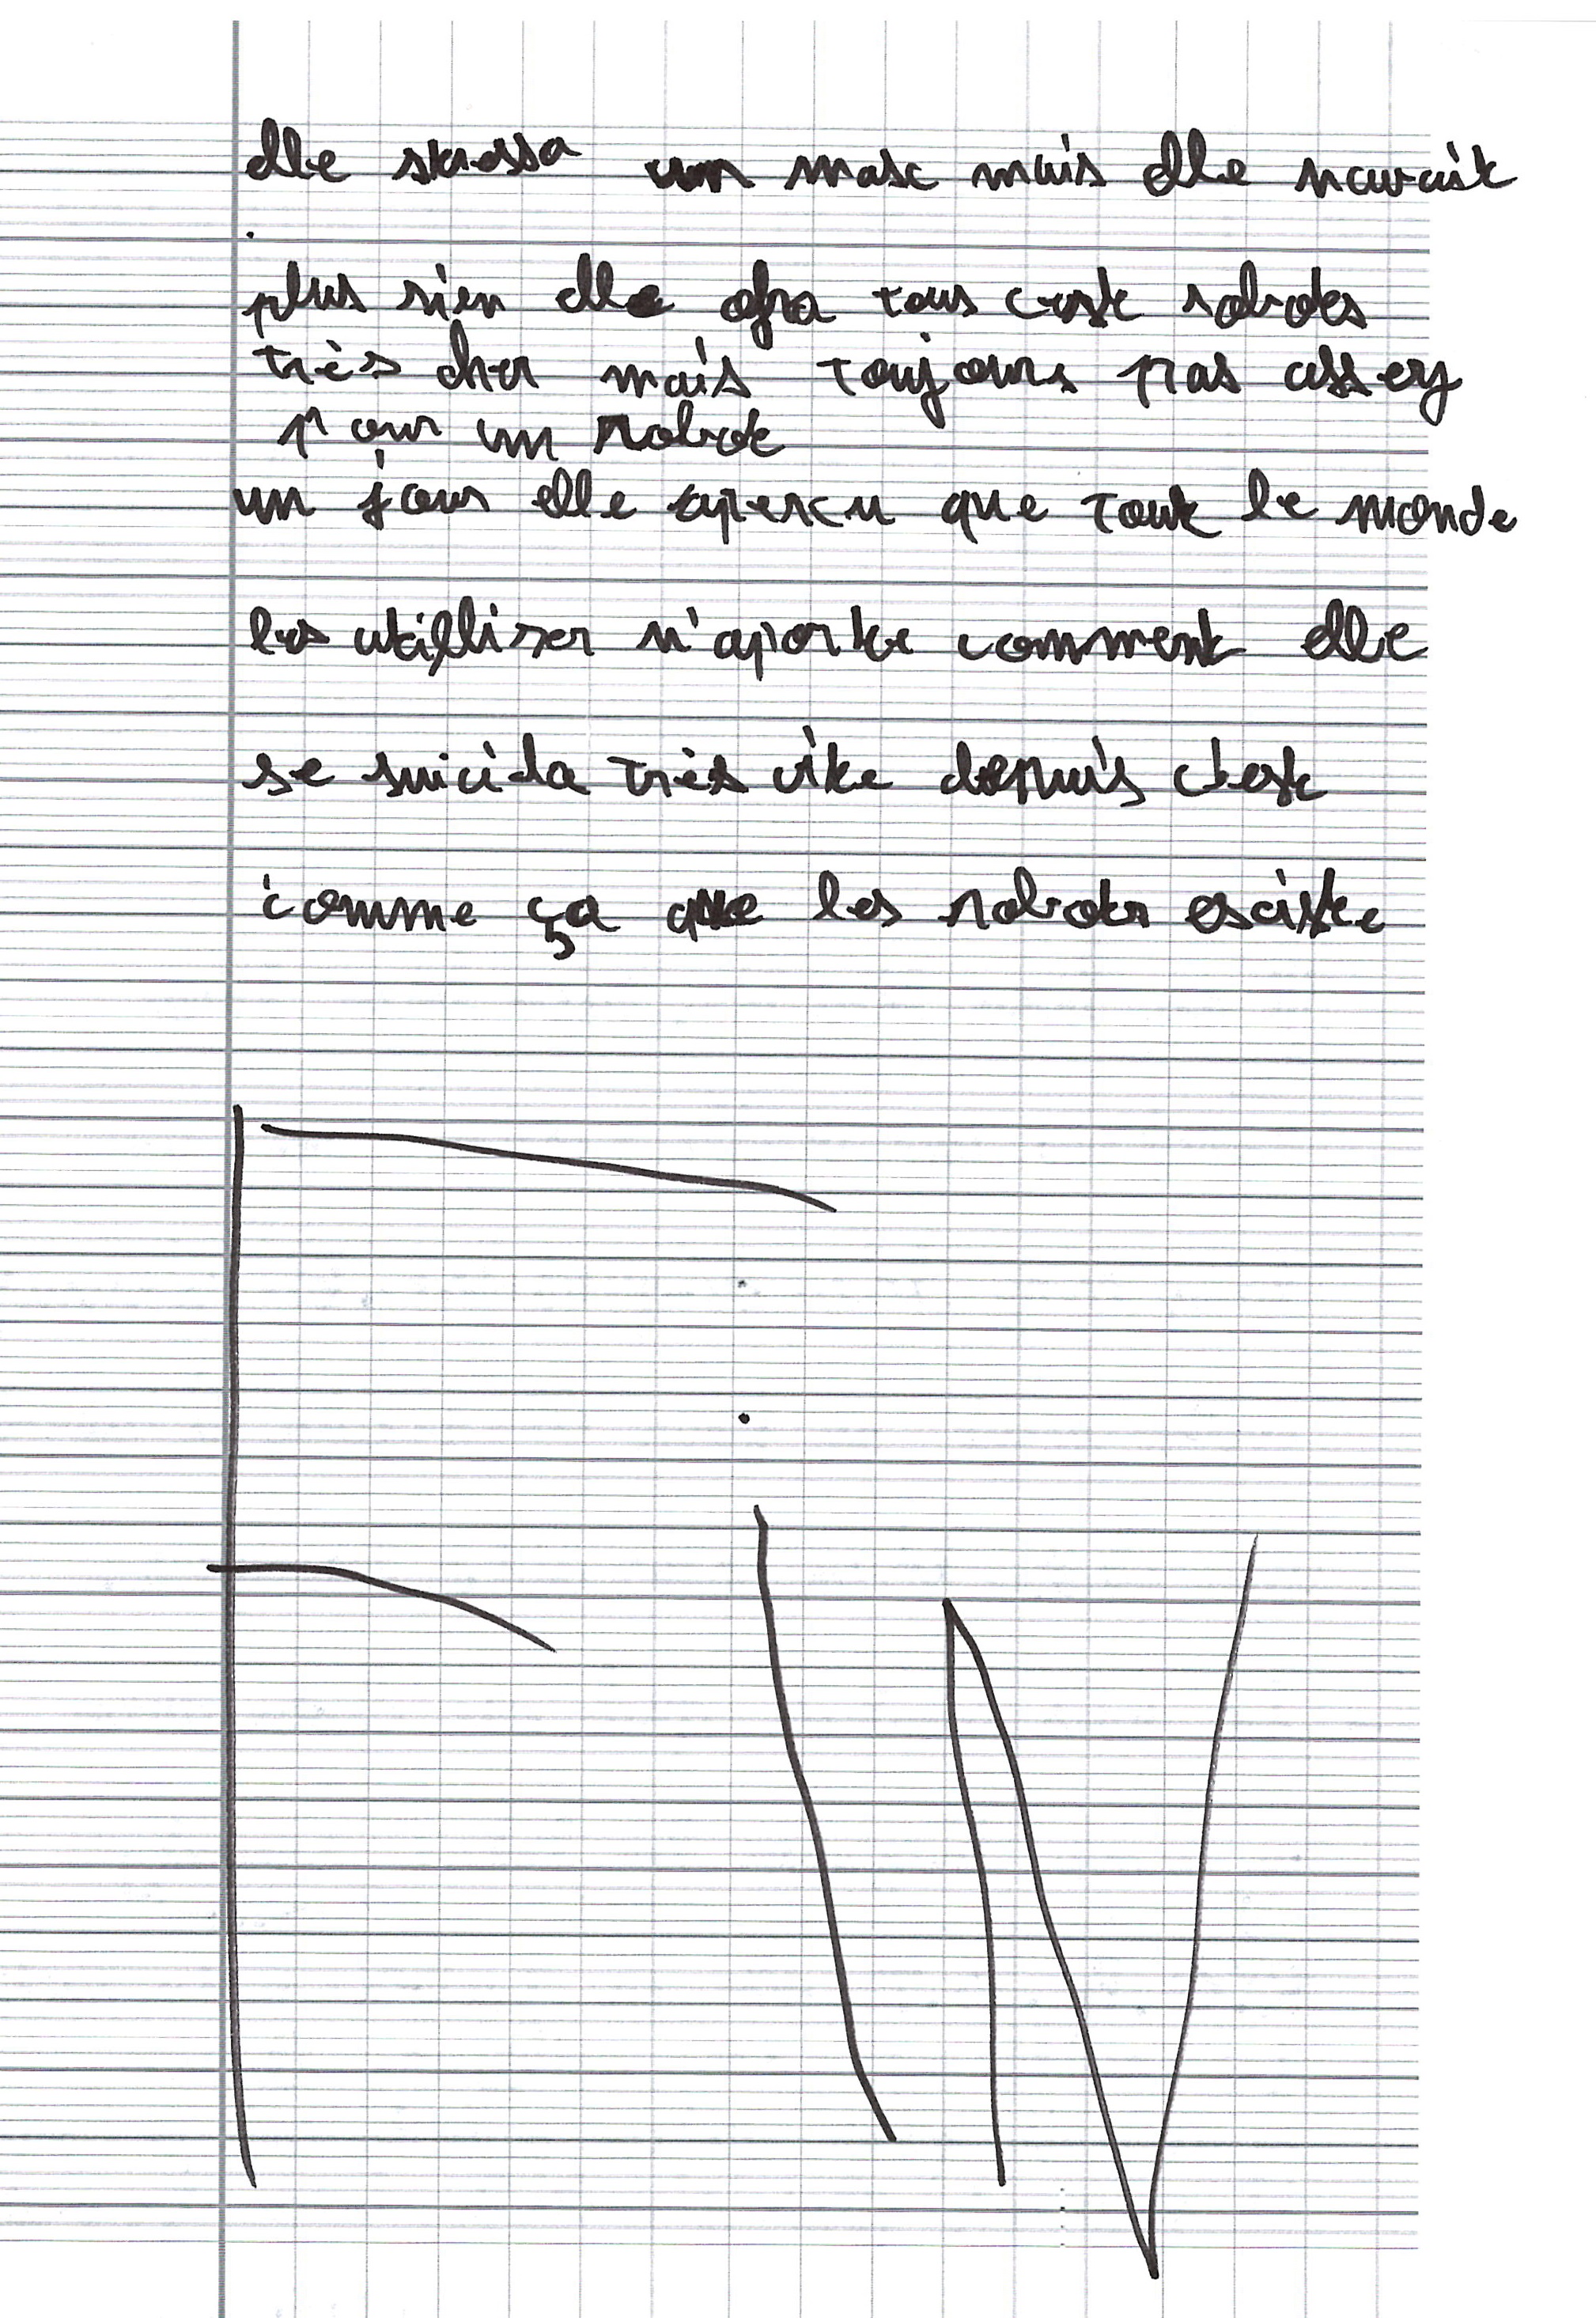 elle stressa un masc mais elle navait
plus rien elle ofra tous cest robotes
très cher mais toujours pas assez
pour un robot
un jour elle apercu que tout le monde
les utilliser n'aporte comment elle
se suicida très vite depuis c'est
comme ça que les robots esciste
FIN